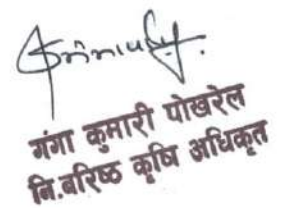 गंगा कुमारी पोखरेल
नि.बरिष्ठ कृषि अधिकृत